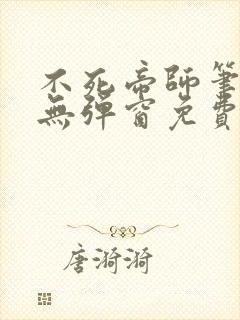 不死帝師筆
無彈窗免費
唐漪漪